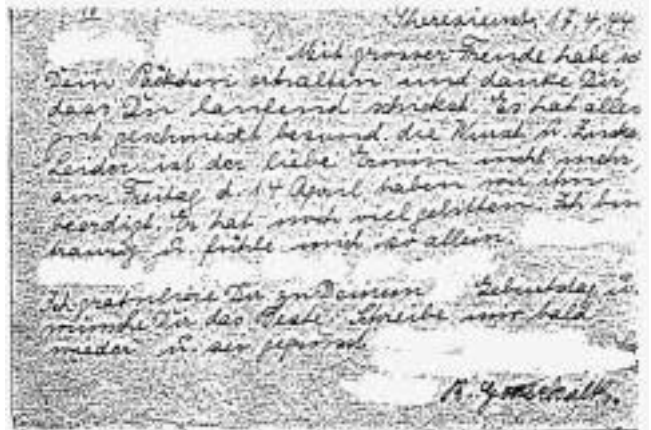 Theresienst, 17.4.44
Mit grosser Freude habe ich
Dein Päckchen erhalten und danke Dir,
dass Du laufend schickst. Es hat alles
gut geschmeckt besond. die Wurst u.
Leider ist der liebe Erwin nicht mehr,
am Freitag d. 14 April haben wir ihn
beerdigt. Er hat noch viel gelitten. Ich bin
traurig u. fühle mich so allein.
Ich gratuliere Dir zu Deinem Geburtstag u.
wünsche Dir das Beste. Schreibe mir bald
wieder u. sei
R.